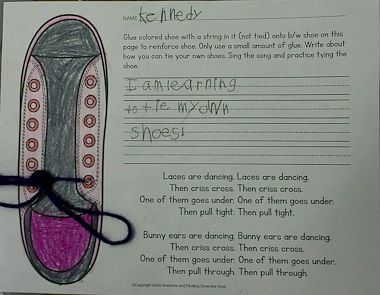 NAME Kennedy
Glue colored shoe with a string in it (not tied) onto b/w shoe on this
page to reinforce shoe. Only use a small amount of glue. Write about
how you can tie your own shoes. Sing the song and practice tying the
shoe.
I am learning
to tie my own
shoes!
Laces are dancing. Laces are dancing.
Then criss cross. Then criss cross.
One of them goes under. One of them goes under.
Then pull tight. Then pull tight.
Bunny ears are dancing. Bunny ears are dancing.
Then criss cross. Then criss cross.
One of them goes under. One of them goes under.
Then pull through. Then pull through.